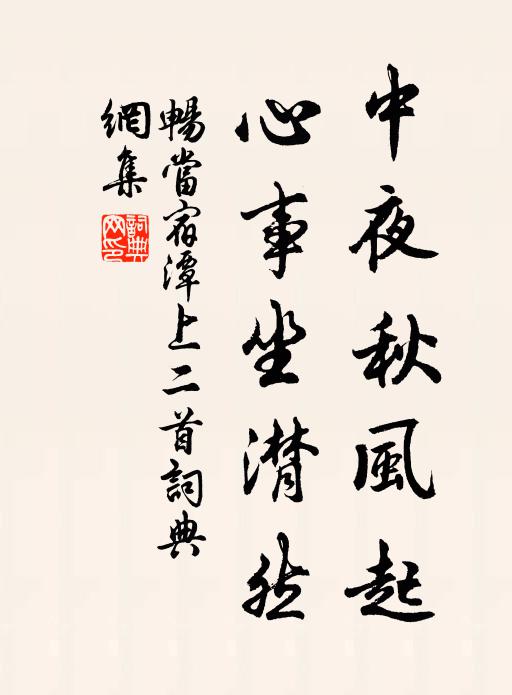 中夜秋風起
心事坐潸然
暢當宿潭上二首詞典
網集
詞典網印